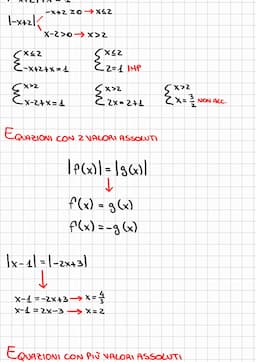 |-x+2| -x+2≥0 → x≤2
x-2>0 → x>2
{x≤2 {x≤2
-x+2+x=1 2=1 IMP
{x>2 {x>2 {x>2
x-2+x=1 2x=2+1 x=3/2 NON ACC.
EQUAZIONI CON 2 VALORI ASSOLUTI
|f(x)|=|g(x)|
↓
f(x)=g(x)
f(x)=-g(x)
|x-1|=|-2x+3|
↓
x-1=-2x+3 → x=4/3
x-1=2x-3 → x=2
EQUAZIONI CON PIÙ VALORI ASSOLUTI